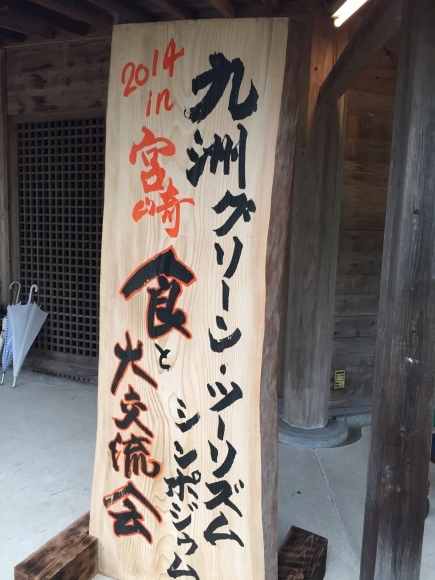 九洲グリーン・ツーリズム
シンポジゥム
2014
in
宮崎
食と
大交流会